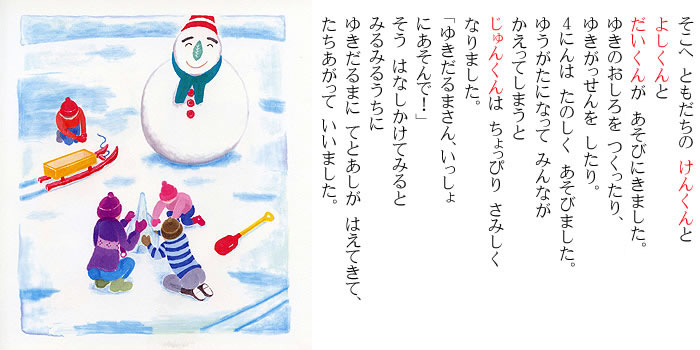 そこへ ともだちの けんくんと
よしくんと
だいくんが あそびにきました。
ゆきのおしろを つくったり、
ゆきがっせんを したり。
4にんは たのしく あそびました。
ゆうがたになって みんなが
かえってしまうと
じゅんくんは ちょっぴり さみしく
なりました。
「ゆきだるまさん、いっしょ
にあそんで！」
そう はなしかけてみると
みるみるうちに
ゆきだるまに てとあしが はえてきて、
たちあがって いいました。